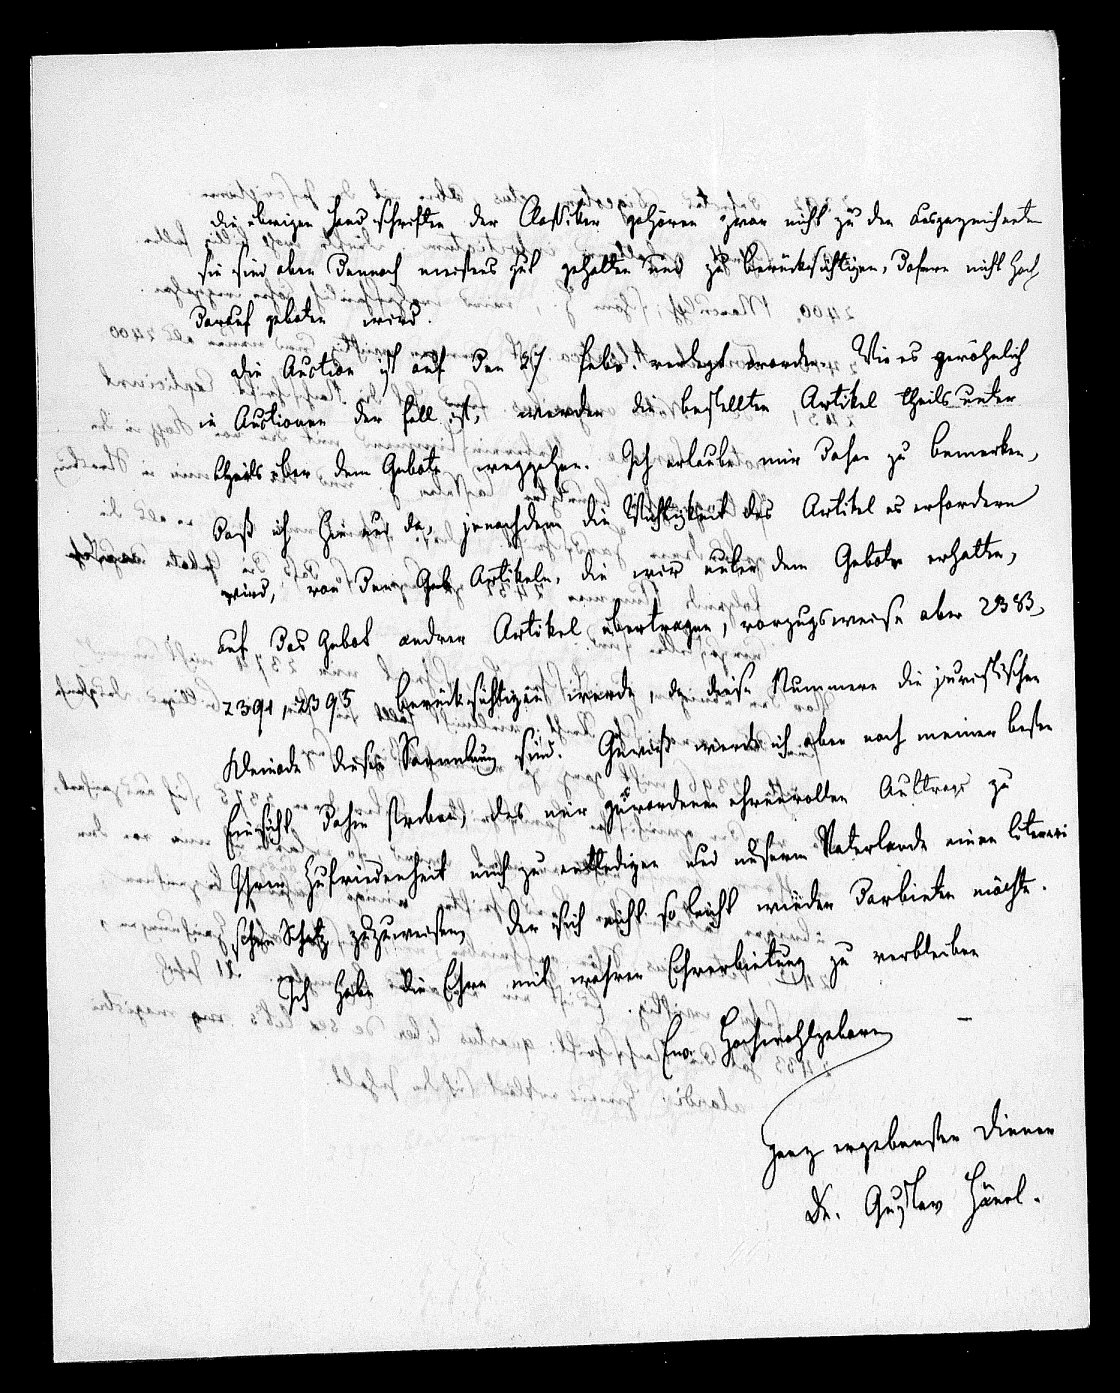 Die übrigen Handschriften der Classiker gehören zwar nicht zu den ausgezeichneten
sie sind aber dennoch meistens gut gehalten und zu berücksichtigen, dafern nicht hoch
darauf geboten wird.
Die Auction ist auf den 27 Febr. verlegt worden. Wie es gewöhnlich
in Auctionen der Fall ist, werden die bestellten Artikel theils unter
theils über dem Gebote weggehen. Ich erlaube mir daher zu bemerken,
daß ich hie und da, jenachdem die Wichtigkeit des Artikel es erfordern
wird, von den Geb. Artikeln, die wir unter dem Gebote erhalten,
auf das Gebot andrer Artikel übertragen, vorzugsweise aber 2383,
2391, 2395 berücksichtigen werde, da diese Nummern die juristischen
Kleinode dieser Sammlung sind. Gewiß werde ich aber nach meiner besten
Einsicht dahin streben, des mir gewordenen ehrenvollen Auftrags zu
Ihrer Zufriedenheit mich zu entledigen und unserm Vaterlande einen literari
schen Schatz zuzuweisen, der sich nicht so leicht wieder darbieten möchte.
Ich habe die Ehre mit wahrer Ehrerbietung zu verbleiben
Ew. Hochwohlgeboren
ganz ergebenster Diener
Dr. Gustav Hänel.